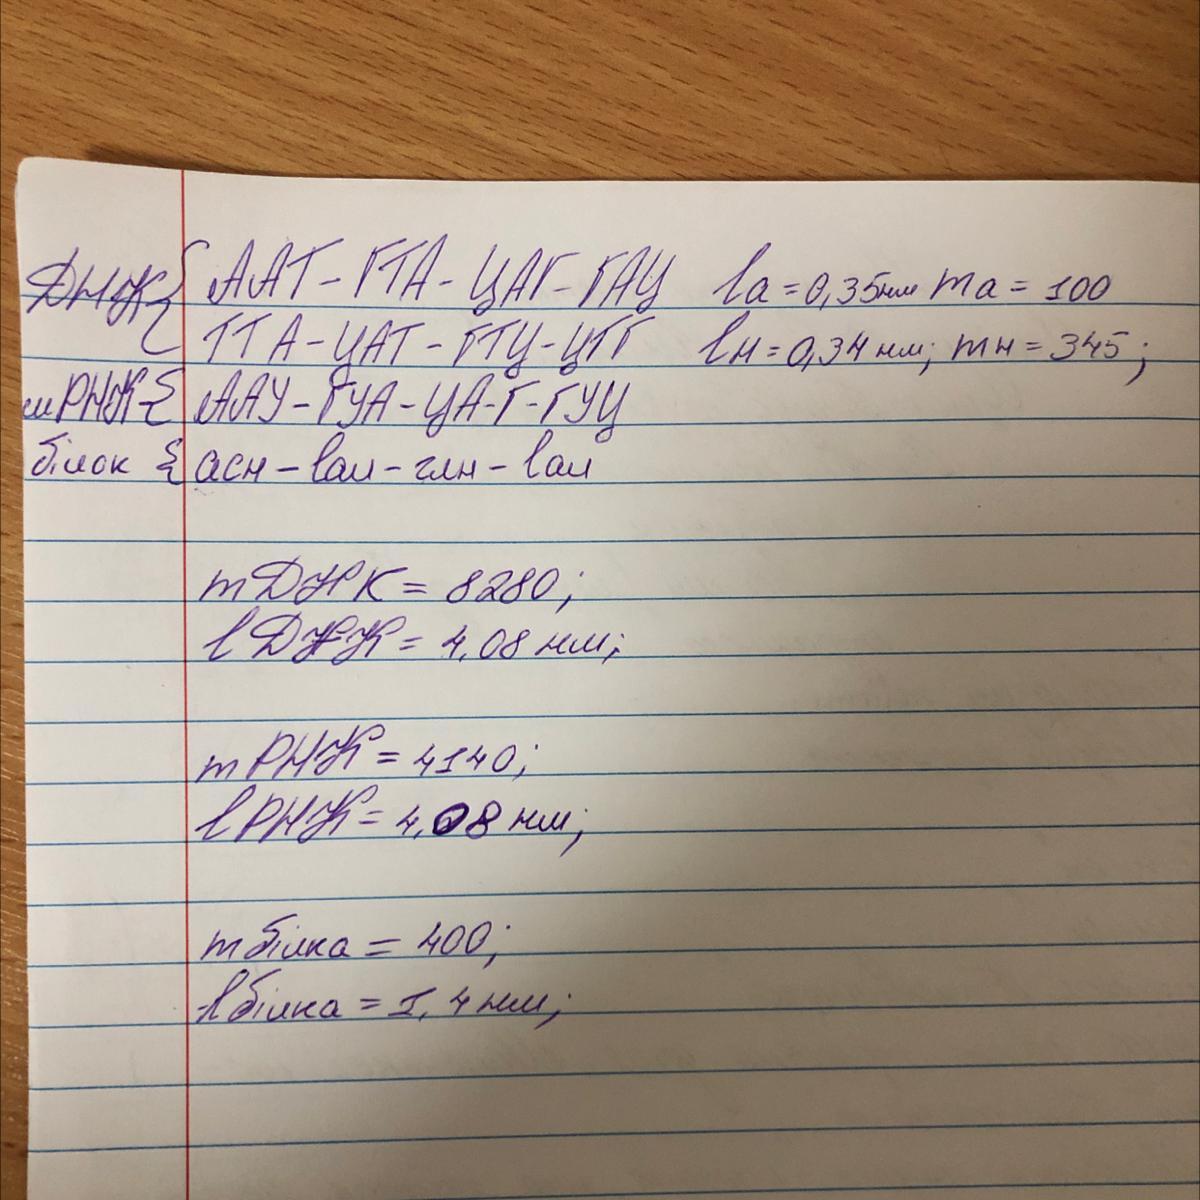 ДНК{ ААТ-ГТА-ЦАГ-ГАЦ lа=0,35нм mа=100
ТТА-ЦАТ-ГТЦ-ЦТГ lн=0,34нм; mн=345;
мРНК{ ААУ-ГУА-ЦА-Г-ГУЦ
білок { асн-вал-глн-вал
mДНК=8280;
lДНК=4,08нм;
mРНК=4140;
lРНК=4,08нм;
mбілка=400;
lбілка=1,4нм;